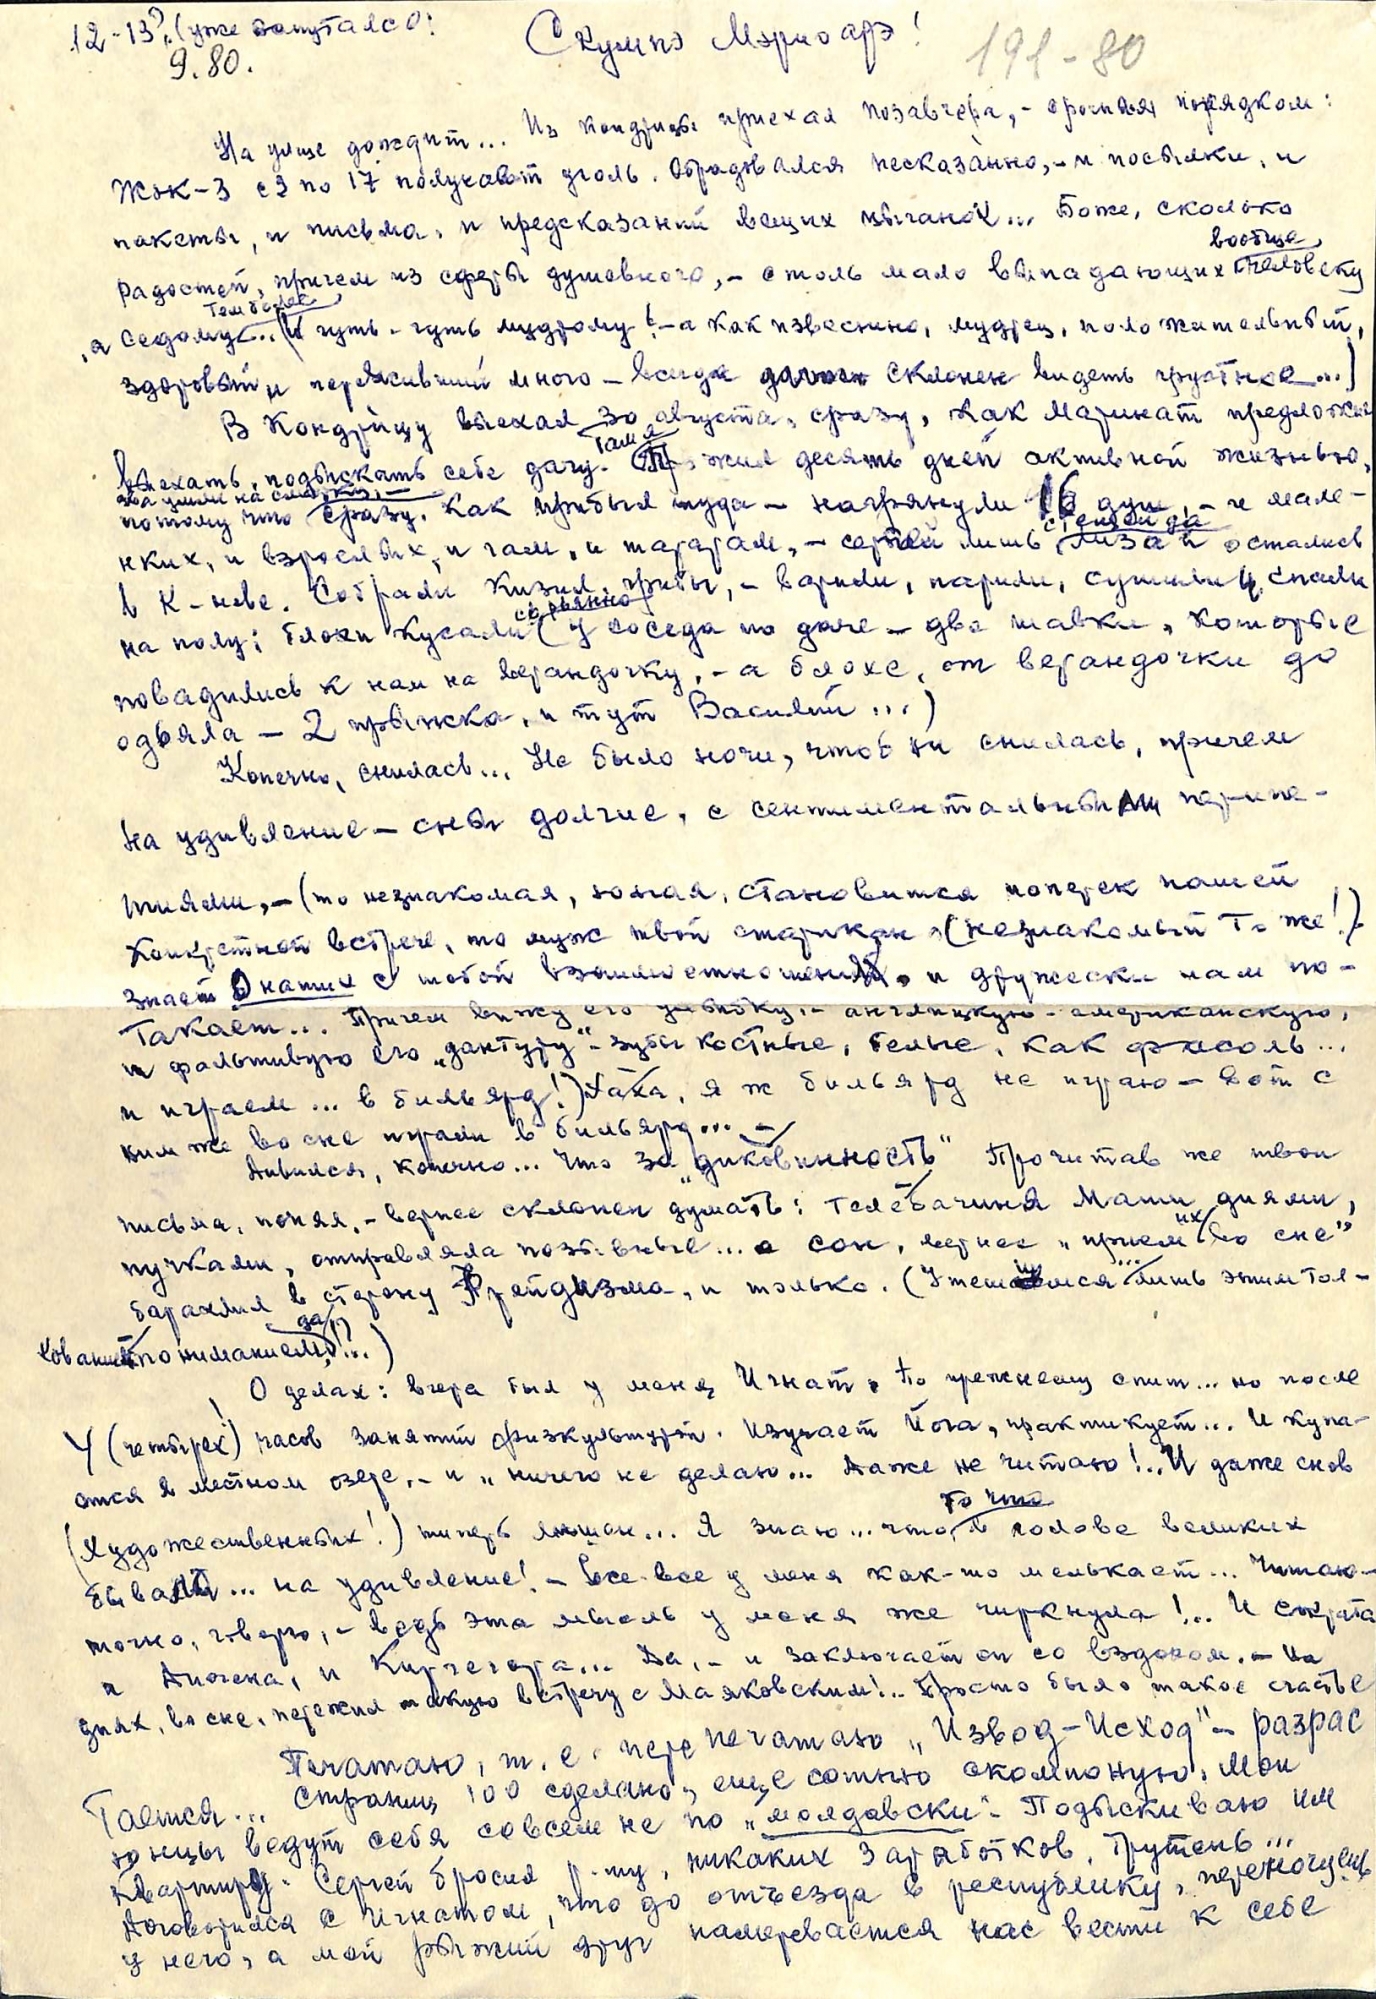 12-13?. (уже запутался!
9.80.
Скумпэ Мэриоарэ!
191-80
На улице дождит... Из Кондрицы приехал позавчера, – срочным порядком:
Жэк-3 с 3 по 17 получают уголь. Обрадовался несказанно, – и посылки, и
пакеты, и письма, и предсказаний вещих цыганок... Боже, сколько
радостей, причем из сферы душевного, – столь мало выпадающих вообще человеку
, а тем более седому... (и чуть-чуть мудрому! – а как известно, мудрец, положительный,
здоровый и переживший много – всегда склонен видеть грустное...)
В Кондрицу выехал 30 августа, сразу, как Маринат предложил
выехать, подыскать себе дачу. Там я жил десять дней активной жизнью,
потому что сразу, как прибыл туда – нагрянули 16 душ, – и мале-
нких, и взрослых, и гам, и тарарам, – лишь Лиза и остались
в К-неве. Собрали кизил, грибы, – варили, парили, сушили и спали
на полу; блохи кусали (у соседа по даче – две шавки, которые
повадились к нам на верандочку, – а блохе, от верандочки до
одеяла – 2 прыжка, и тут Василий...)
Конечно, снилась... Не было ночи, чтоб ни снилась, причем
на удивление – сны долгие, с сентиментальными перипе-
тиями, – (то незнакомая, юная, становится поперек нашей
конкретной встрече, то муж твой старикан, (незнакомый то же!)
знает о наших с тобой взаимоотношениях, и дружески нам по-
такает... Причем вижу его улыбку, – английскую-американскую,
и фальшивую его „дантуру" – зубы костные, белые, как фасоль...
и играем... в бильярд!) Хаха, я ж бильярд не играю – вот с
ним же во сне играли в бильярд... –
Дивился, конечно... Что за „диковинность" Прочитав же твои
письма, понял, – вернее склонен думать: телебачиня Маши днями,
пучками, отправляла позывные... а сон, вернее „прием их во сне"
барахлил в сторону Фрейдизма, и только. (Утешился ... лишь этим тол-
кованием да пониманием!?..)
О делах: вчера был у меня Игнат. По прежнему спит... но после
4 (четырех!) часов занятий физкультурой. Изучает Йога, практикует... И купа-
ется в местном озере, – и „ничего не делаю... Даже не читаю!.. И даже снов
(художественных!) теперь лишен... Я знаю... что, то что в голове великих
бывали... на удивление! – Все-все у меня как-то мелькает... Читаю –
точно, говорю, – ведь эта мысль у меня же чиркнула!... И Сократа
и Диогена, и Киркегора... Да, – и заключает он со вздохом, – На
днях, во сне, пережил такую встречу с Маяковским!.. Просто было такое счастье
Печатаю, т. е. перепечатаю „Извод-Исход" – разрас
тается... Страниц 100 сделано, еще сотню скомпоную. Мои
юнцы ведут себя совсем не по „молдавски". Подыскиваю им
квартиру. Сергей бросил р-ту, никаких заработков. Трутень...
Договорился с Игнатом, что до отъезда в республику, переночуешь
у него, а мой рыжий друг намеревается нас вести к себе